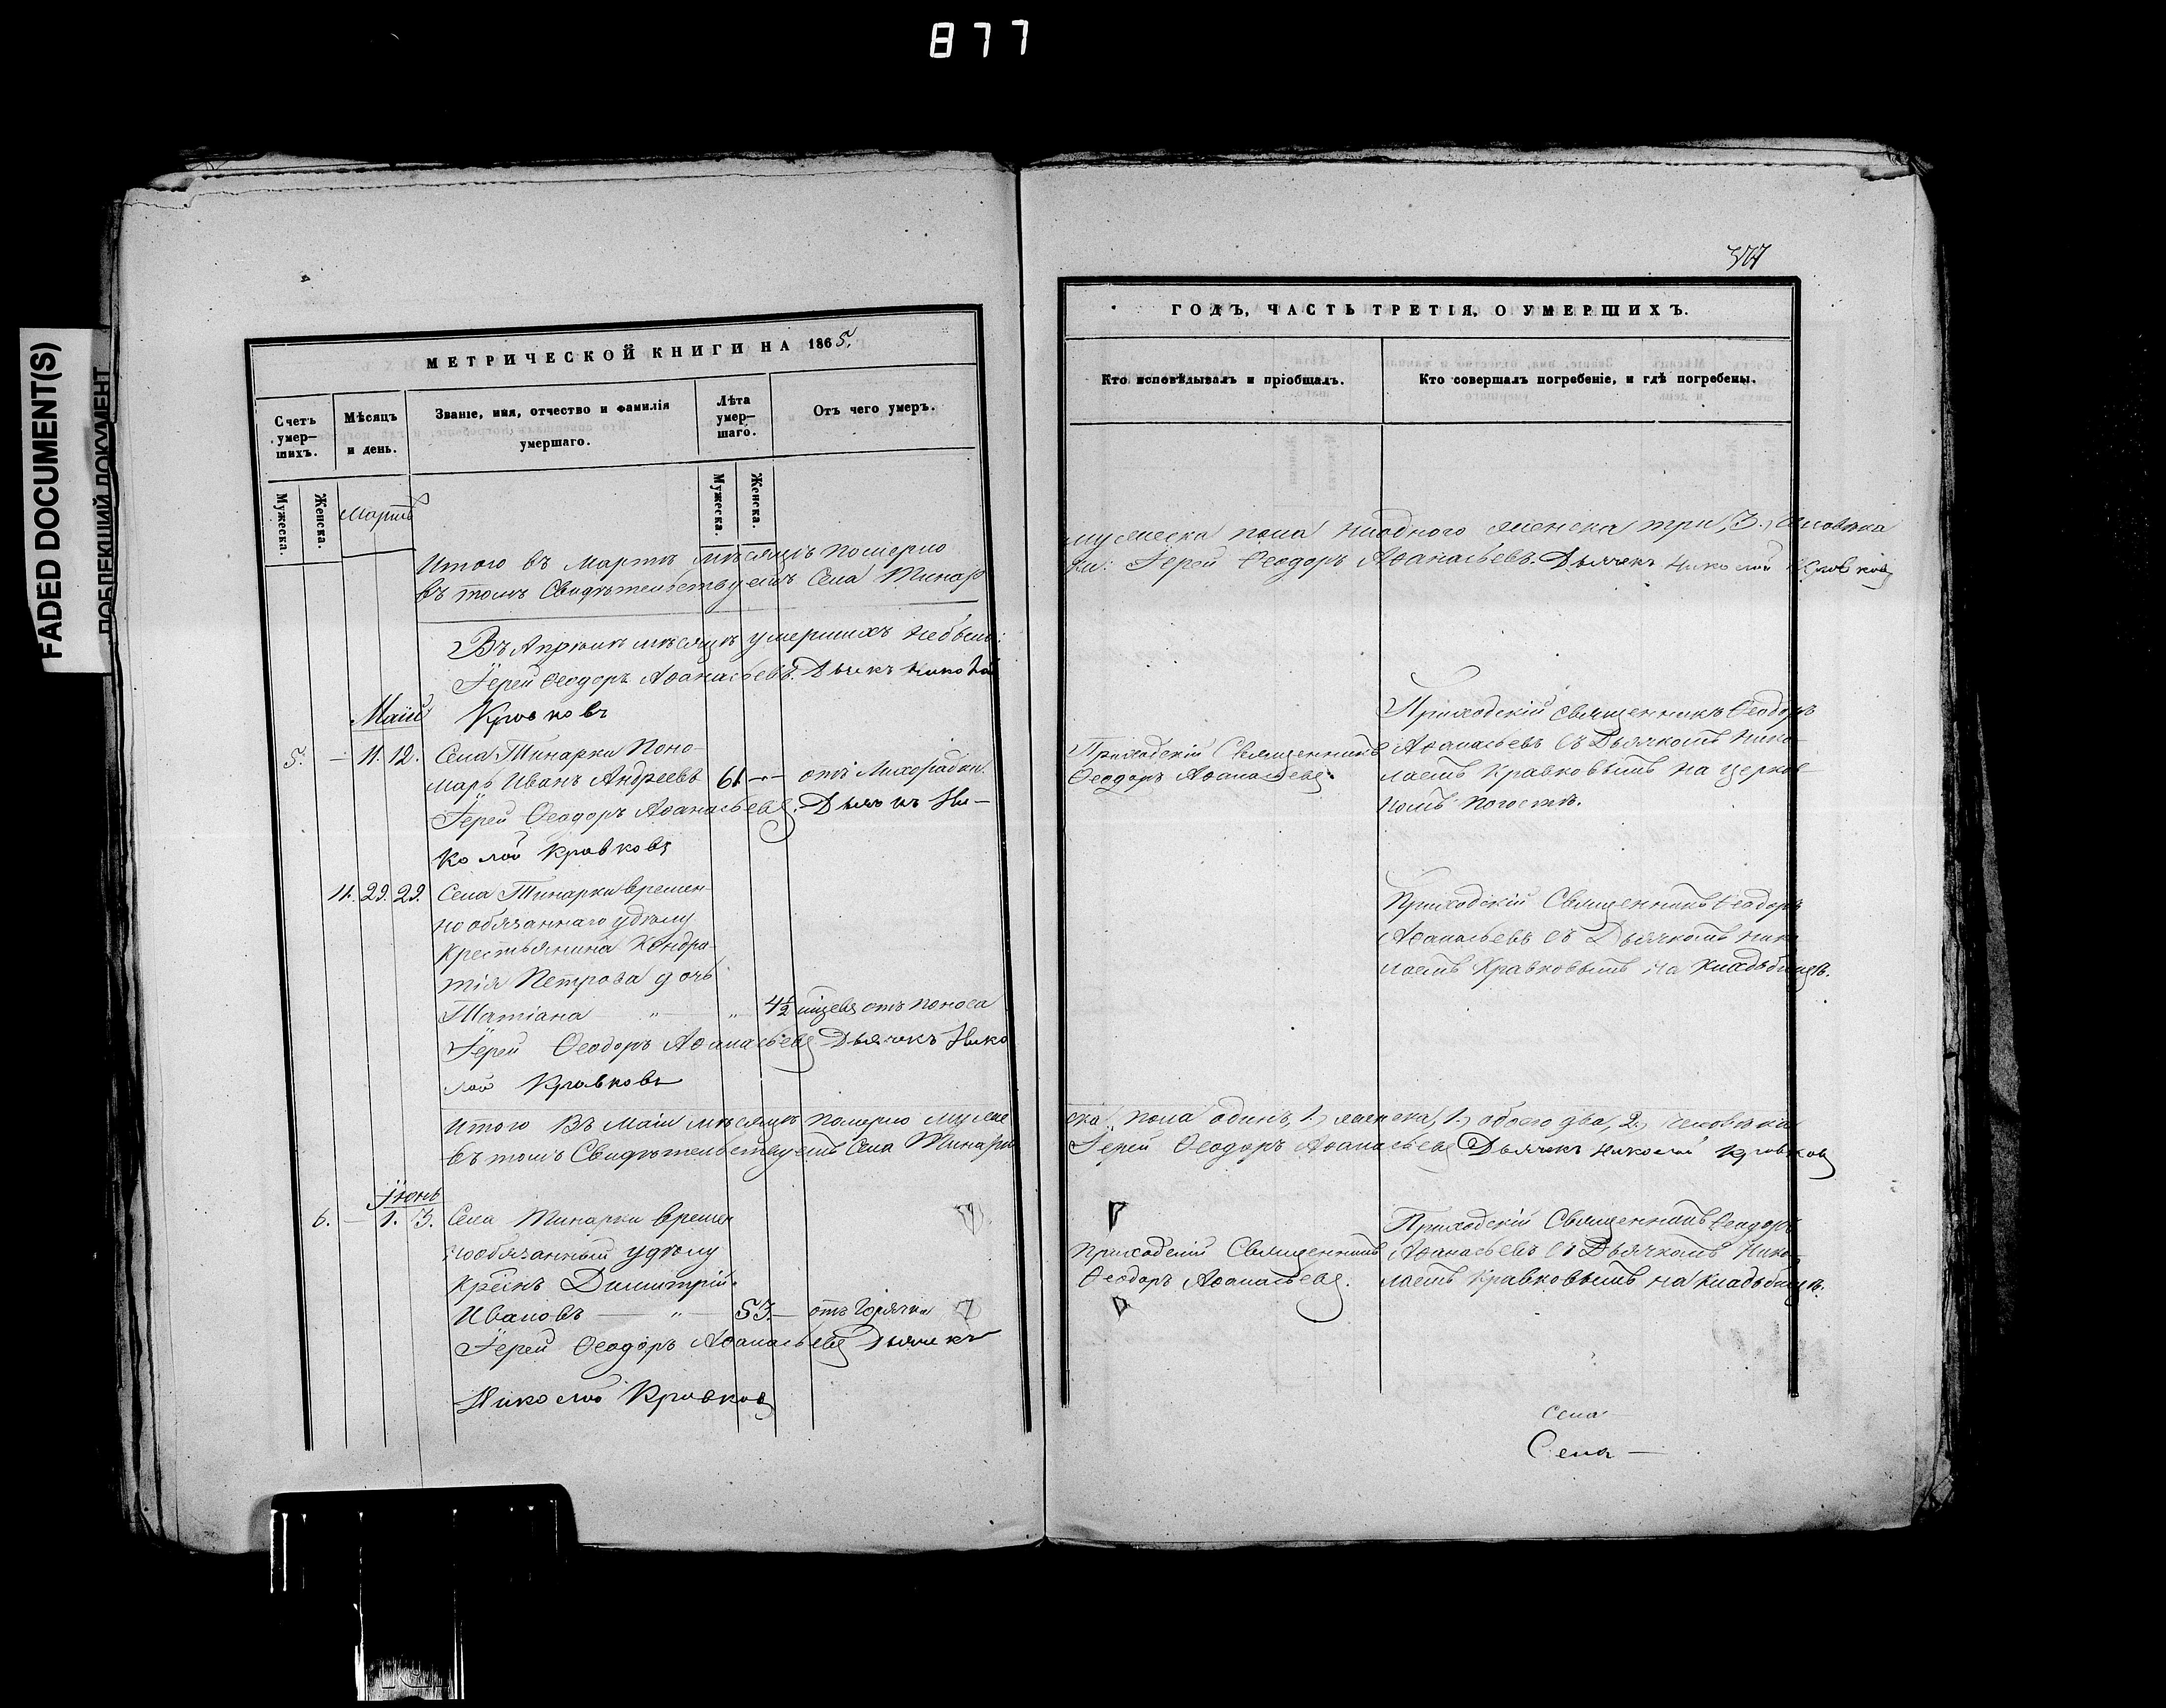 877
FADED DOCUMENT(S)
ПОБЛЕКШИЙ ДОКУМЕНТ
МЕТРИЧЕСКОЙ КНИГИ НА 1865.
Счетъ умер-
шихъ.
Мѣсяцъ
и день.
Званіе, имя, отчество и фамилія
умершаго.
Лѣта
умер-
шаго.
Отъ чего умеръ.
Мужеска.
Женска.
Мартъ
Мужеска.
Женска.
Итого въ Мартѣ мѣсяцѣ померло
въ томъ Свидѣтельствуемъ Села Тинар
Въ Апрѣлѣ мѣсяцѣ умершихъ небыло:
Іерей Ѳеодоръ Аѳанасьевъ. Дьячекъ Николай
Маій Кравковъ
5. — 11. 12. Села Тинарки Поно-
марь Иванъ Андреевъ 61 — отъ Лихорадки.
Іерей Ѳеодоръ Аѳанасьевъ. Дьячекъ Ни-
колай Кравковъ
4. 29. 29. Села Тинарки времен-
но обязаннаго удѣлу
Крестьянина Кондра-
тія Петрова дочь
Татіана " " 4½ отъ поноса
Іерей Ѳеодоръ Аѳанасьевъ Дьячекъ Нико
лай Кравковъ
Итого Въ Маіи мѣсяцѣ померло муже
въ томъ Свидѣтельствуемъ Села Тинарки
Іюнь
6. — 1. 3. Села Тинарки времен
нообязанный удѣлу
Кре­нъ Димитрій
Ивановъ — " — 53. — отъ Горячки
Іерей Ѳеодоръ Аѳанасьевъ Дьячекъ
Николай Кравковъ
ГОДЪ, ЧАСТЬ ТРЕТІЯ, О УМЕРШИХЪ.
Кто исповѣдывалъ и пріобщалъ.
Кто совершалъ погребеніе, и гдѣ погребены.
мужеска пола ниодного женска три, 3., человѣка
ки: Іерей Ѳеодоръ Аѳанасьевъ. Дьячекъ Николай Кравковъ
Приходскій Священникъ
Ѳеодоръ Аѳанасьевъ.
Приходскій священникъ Ѳеодоръ
Аѳанасьевъ Съ Дьячкомъ Нико-
лаемъ Кравковымъ на церков-
номъ погостѣ.
Приходскій Священникъ Ѳеодоръ
Аѳанасьевъ Съ Дьячкомъ Нико-
лаемъ Кравковымъ на Кладьбищѣ.
ска пола одинъ, 1., женска, 1., обоего два, 2., человѣка
Іерей Ѳеодоръ Аѳанасьевъ Дьячекъ Николай Кравковъ
Приходскій Священникъ
Ѳеодоръ Аѳанасьевъ.
Приходскій Священникъ Ѳеодоръ
Аѳанасьевъ Съ Дьячкомъ Нико-
лаемъ Кравковымъ на Кладьбищѣ.
Села
Села —